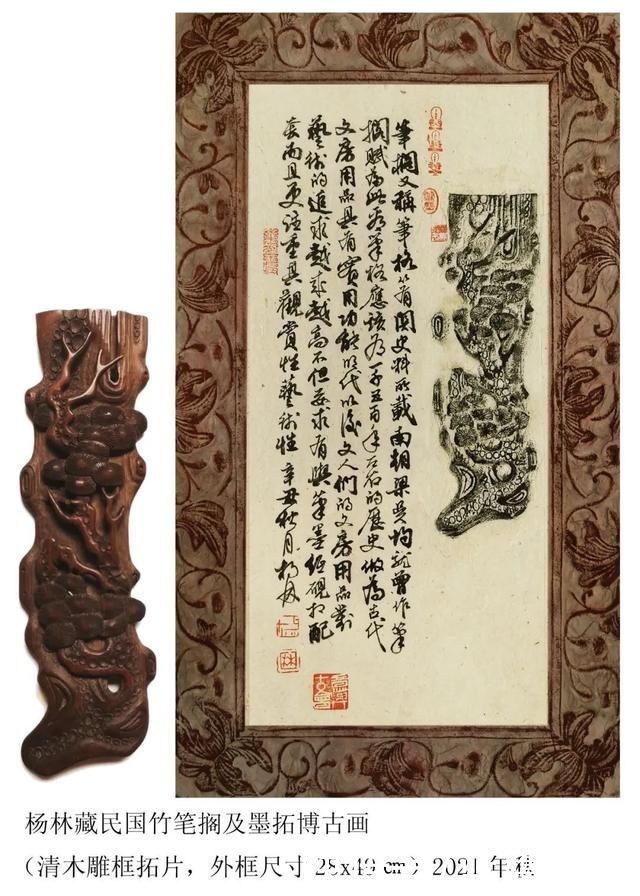 筆搁又稱筆格有関史料所載南朝梁吴均就曾作筆
搁赋為此筆格應该为一千五百年左右的歷史做為古代
文房用品具有實用功能明代以後文人们的文房用品對
藝術的追求越来越高不但要求有與筆墨纸硯相配
套而且更注重其觀賞性藝術性 辛丑秋月杨林
杨林藏民国竹笔搁及墨拓博古画
（清木雕框拓片，外框尺寸 28x49 cm）2021 年